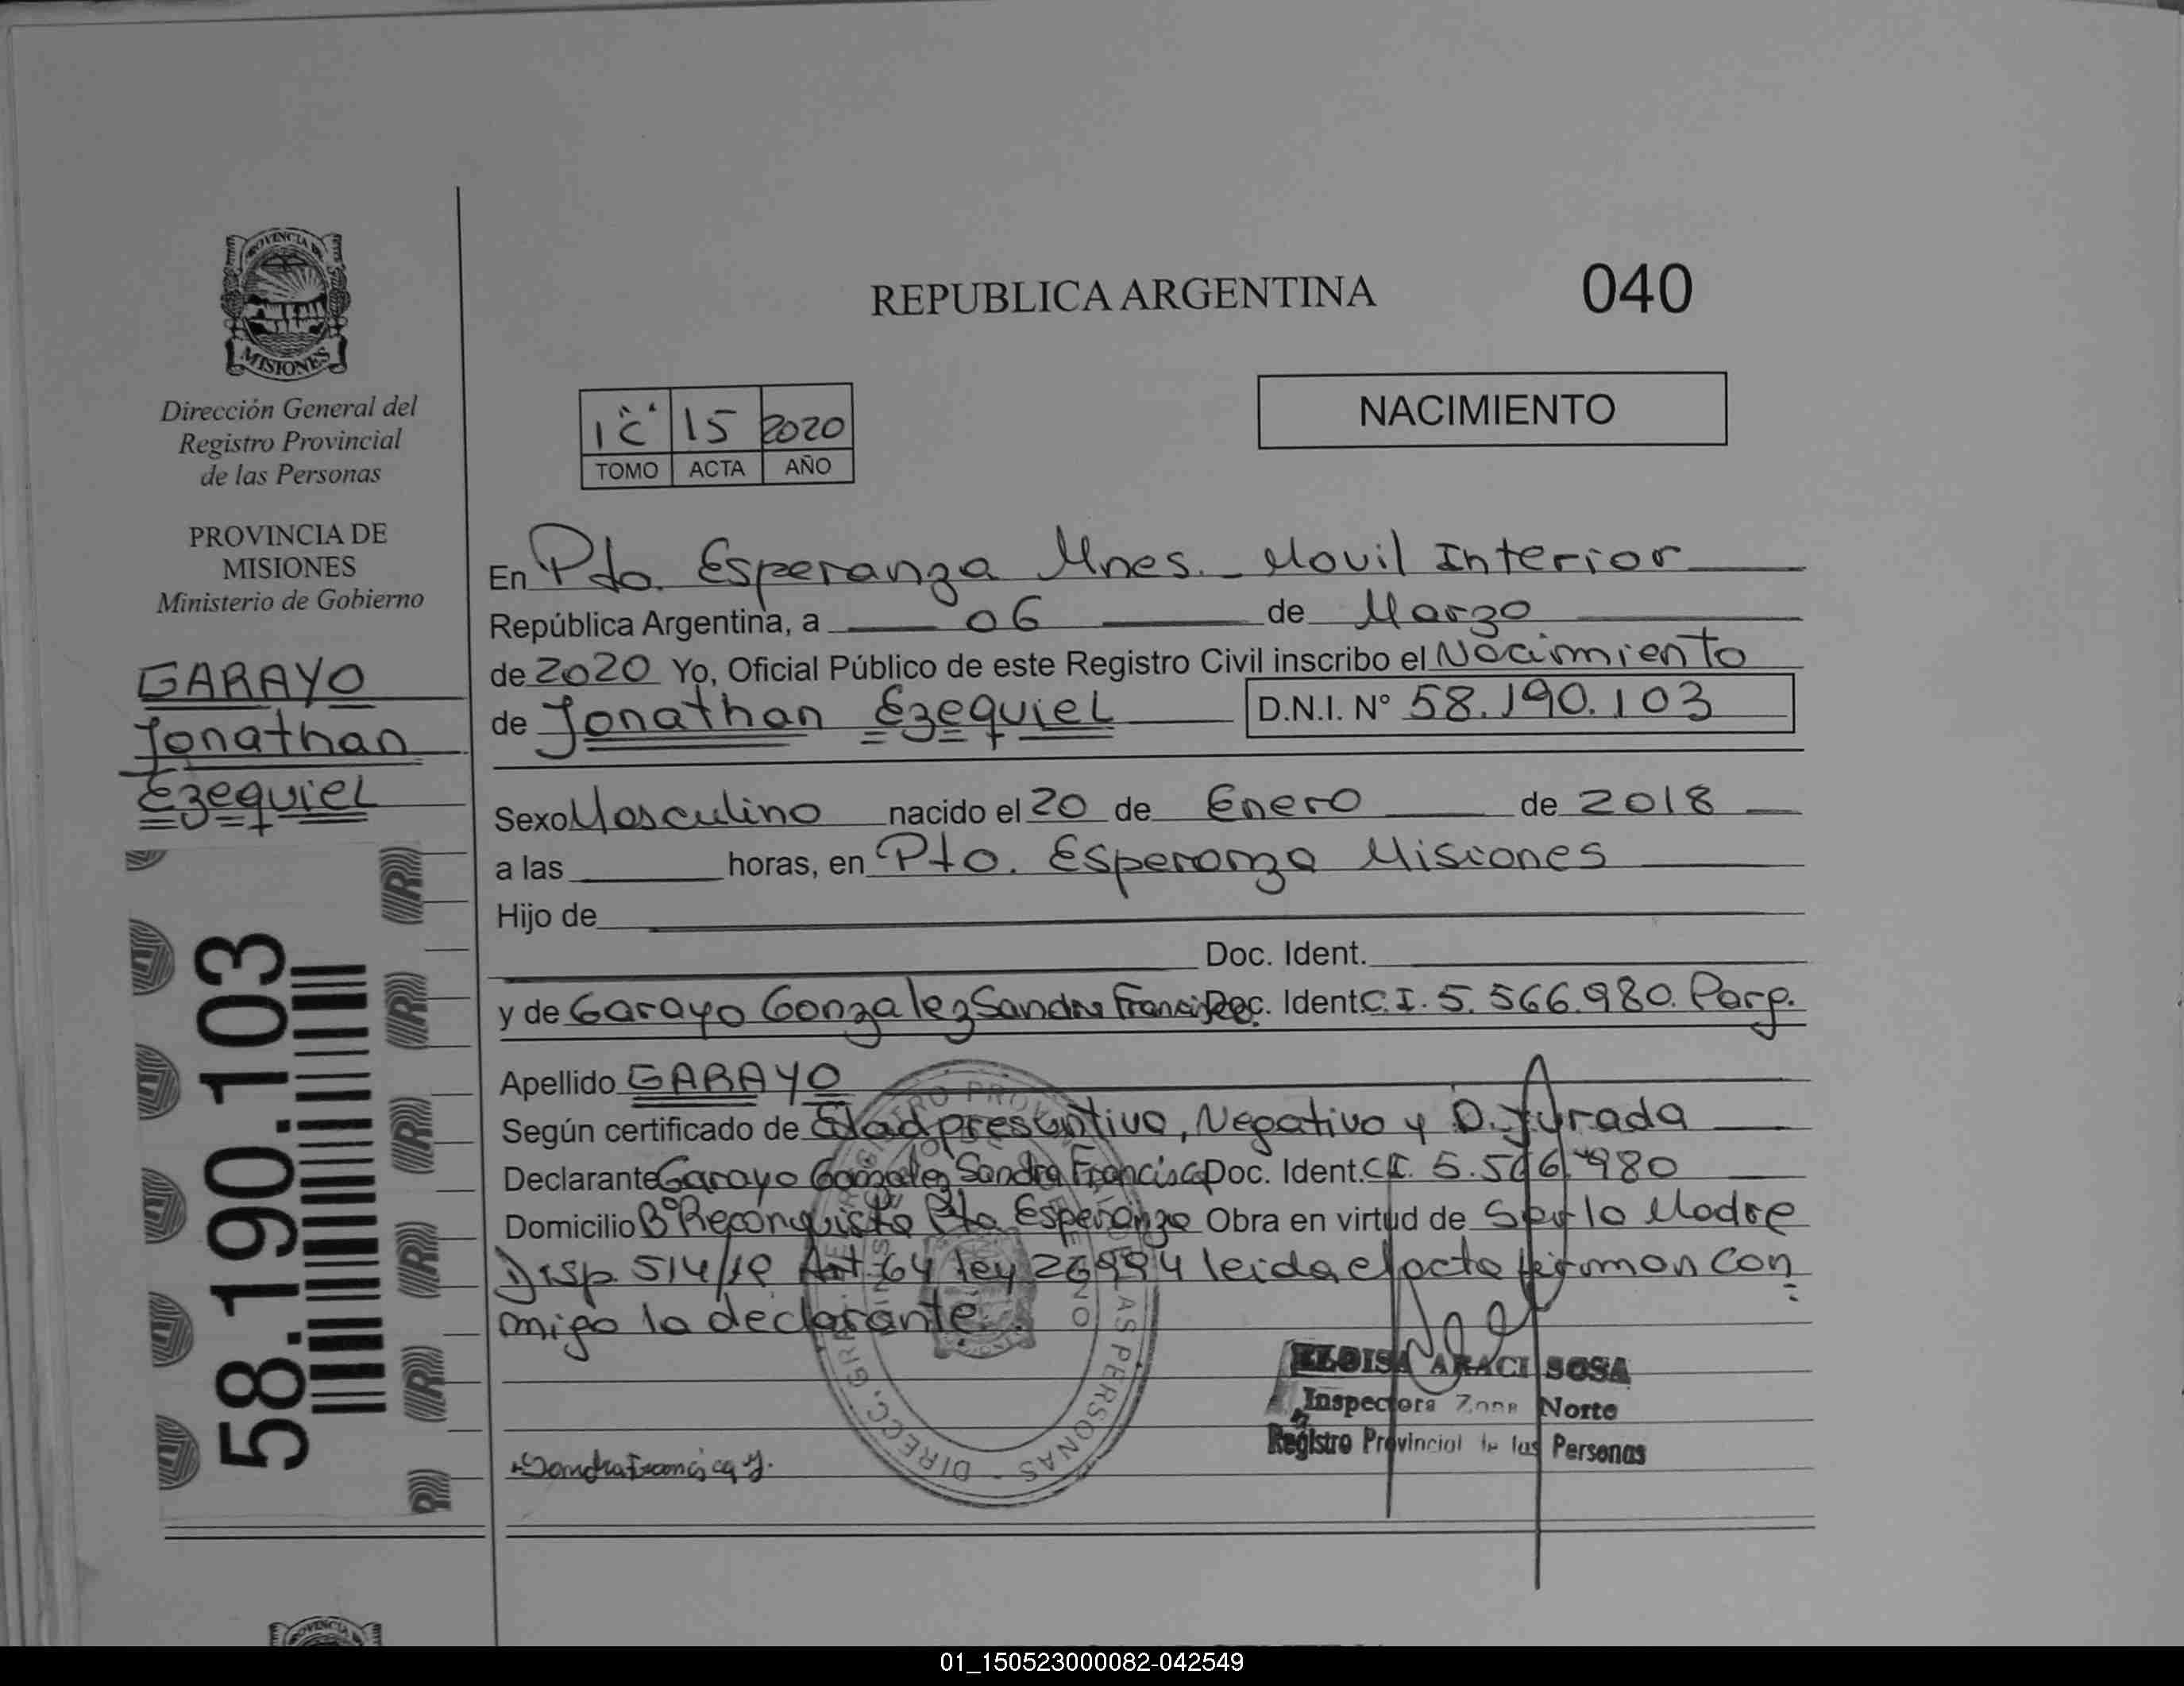 PROVINCIA DE
MISIONES
Dirección General del
Registro Provincial
de las Personas
PROVINCIA DE
MISIONES
Ministerio de Gobierno
GARAYO
Jonathan
Ezequiel
58.190.103
REPUBLICA ARGENTINA 040
15 2020
TOMO ACTA AÑO
NACIMIENTO
En Pto. Esperanza Mnes. - Movil Interior
República Argentina, a 06 de Marzo
de 2020 Yo, Oficial Público de este Registro Civil inscribo el Nacimiento
de Jonathan Ezequiel D.N.I. N° 58.190.103
Sexo Masculino nacido el 20 de Enero de 2018
a las horas, en Pto. Esperanza Misiones
Hijo de
Doc. Ident.
y de Garayo Gonzalez Sandra Doc. Ident. C.I. 5.566.980. Parg.
Apellido GARAYO
Según certificado de Edad presuntiva, Negativo y D. Jurada
Declarante Garayo Gonzalez Sandra Francisca Doc. Ident. C.I. 5.566.980
Domicilio B° Reconquista Pto. Esperanza Obra en virtud de Ser la Madre
Disp. 514/19 Art. 64 ley 26994 leida el acta firman con
migo la declarante.
ELOISA ARACI SOSA
Inspectora Zona Norte
Registro Provincial de las Personas
Sandra Francisca G.
01_150523000082-042549